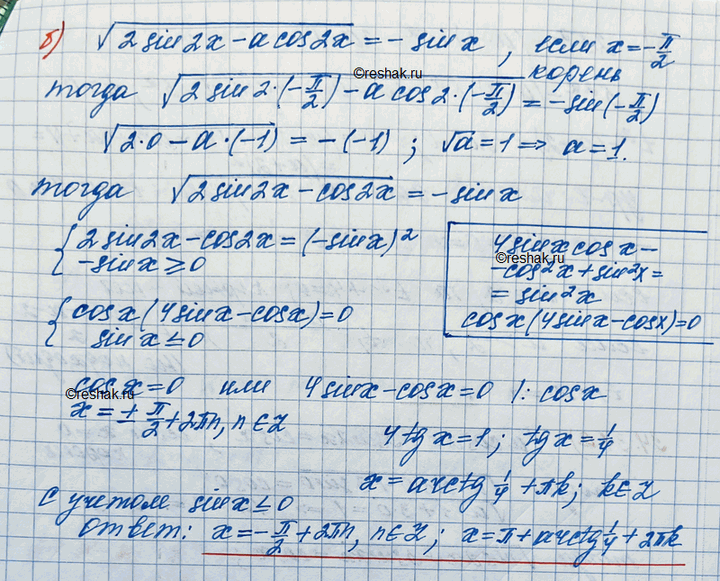 б) √(2 sin 2x - a cos 2x) = - sin x, если x = -π/2
корень
©reshak.ru
тогда √(2 sin 2·(-π/2) - a cos 2·(-π/2)) = -sin(-π/2)
√(2·0 - a·(-1)) = -(-1) ; √a = 1 ⇒ a = 1.
тогда √(2 sin 2x - cos 2x) = - sin x
{ 2 sin 2x - cos 2x = (-sin x)²
-sin x ≥ 0
{ cos x (4 sin x - cos x) = 0
sin x ≤ 0
4 sin x cos x -
©reshak.ru
- cos²x + sin²x =
= sin²x
cos x (4 sin x - cos x) = 0
cos x = 0 или 4 sin x - cos x = 0 |: cos x
©reshak.ru
x = ± π/2 + 2πn, n ∈ Z
4 tg x = 1 ; tg x = 1/4
x = arctg 1/4 + πk ; k ∈ Z
с учетом sin x ≤ 0
ответ: x = -π/2 + 2πn, n ∈ Z ; x = π + arctg 1/4 + 2πk